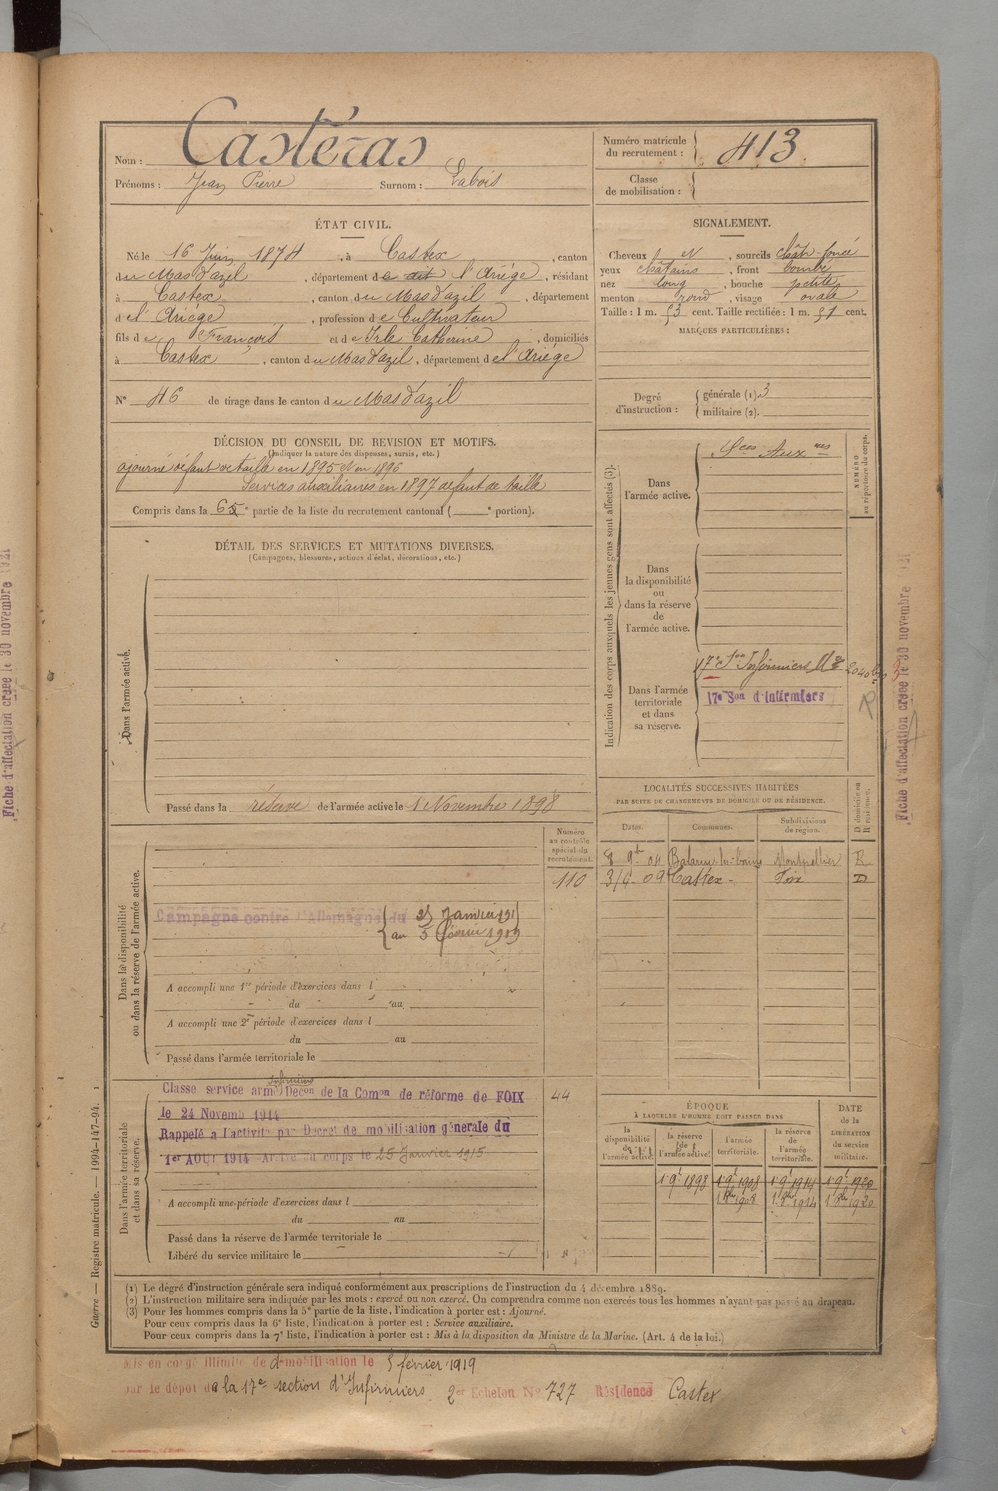 Nom : Castéras
Prénoms : Jean Pierre Surnom : Labois
Numéro matricule du recrutement : 413
Classe de mobilisation :
ÉTAT CIVIL.
Né le 16 Juin 1874, à Castex, canton
du Mas d'azil, département de l'Ariège, résidant
à Castex, canton du Mas d'azil, département
de l'Ariège, profession de Cultivateur
fils de François et de Irle Catherine, domiciliés
à Castex, canton du Mas d'azil, département de l'Ariège
N° 46 de tirage dans le canton du Mas d'azil
SIGNALEMENT.
Cheveux N, sourcils chât. foncé
yeux châtains, front bombé
nez long, bouche petite
menton rond, visage ovale
Taille : 1 m. 53 cent. Taille rectifiée : 1 m. 51 cent.
MARQUES PARTICULIÈRES :
Degré d'instruction : générale (1). 3
militaire (2).
DÉCISION DU CONSEIL DE REVISION ET MOTIFS.
(Indiquer la nature des dispenses, sursis, etc.)
ajourné défaut de taille en 1895 et en 1896
Services auxiliaires en 1897 défaut de taille
Compris dans la 6e partie de la liste du recrutement cantonal ( e portion).
DÉTAIL DES SERVICES ET MUTATIONS DIVERSES.
(Campagnes, blessures, actions d'éclat, décorations, etc.)
Dans l'armée active.
Passé dans la réserve de l'armée active le 1 Novembre 1898
Indication des corps auxquels les jeunes gens sont affectés (3).
NUMÉRO au répertoire du corps.
Dans l'armée active.
Sces Auxres
Dans la disponibilité ou dans la réserve de l'armée active.
Dans l'armée territoriale et dans sa réserve.
17e Son Infirmiers
17e Son d'Infirmiers
Fiche d'affectation créée le 30 novembre 1921
Fiche d'affectation créée le 30 novembre 1921
LOCALITÉS SUCCESSIVES HABITÉES
PAR SUITE DE CHANGEMENTS DE DOMICILE OU DE RÉSIDENCE.
Dates. Communes. Subdivisions de région. D domicile ou R résidence.
8 9bre 04 Balaruc-les-bains Montpellier R
3/6-09 Castex - Foix D
Dans la disponibilité ou dans la réserve de l'armée active.
Numéro au contrôle spécial du recrutement.
110
Campagne contre l'Allemagne du 25 Janvier 1915
au 5 février 1919
A accompli une 1re période d'exercices dans l
du au
A accompli une 2e période d'exercices dans l
du au
Passé dans l'armée territoriale le
Dans l'armée territoriale et dans sa réserve.
infirmiers
Classé service armé Décon de la Comon de réforme de FOIX
le 24 Novemb 1914
44
Rappelé à l'activité par Décret de mobilisation générale du
1er AOUT 1914 Arrivé au corps le 25 Janvier 1915
A accompli une période d'exercices dans l
du au
Passé dans la réserve de l'armée territoriale le
Libéré du service militaire le
ÉPOQUE
À LAQUELLE L'HOMME DOIT PASSER DANS
DATE de la LIBÉRATION du service militaire.
la disponibilité de l'armée active. la réserve de l'armée active. l'armée territoriale. la réserve de l'armée territoriale.
1 9bre 1898 1 9bre 1908 1 9bre 1914 1 9bre 1920
1 8bre 1908 1 8bre 1914 1 8bre 1920
Guerre — Registre matricule. — 1994-147-94.
(1) Le dégré d'instruction générale sera indiqué conformément aux prescriptions de l'instruction du 4 décembre 1889.
(2) L'instruction militaire sera indiquée par les mots : exercé ou non exercé. On comprendra comme non exercés tous les hommes n'ayant pas passé au drapeau.
(3) Pour les hommes compris dans la 5e partie de la liste, l'indication à porter est : Ajourné.
Pour ceux compris dans la 6e liste, l'indication à porter est : Service auxiliaire.
Pour ceux compris dans la 7e liste, l'indication à porter est : Mis à la disposition du Ministre de la Marine. (Art. 4 de la loi.)
Mis en congé illimité de démobilisation le 5 février 1919
par le dépôt de la 17e section d'Infirmiers 2e Echelon N° 727 Résidence Castex